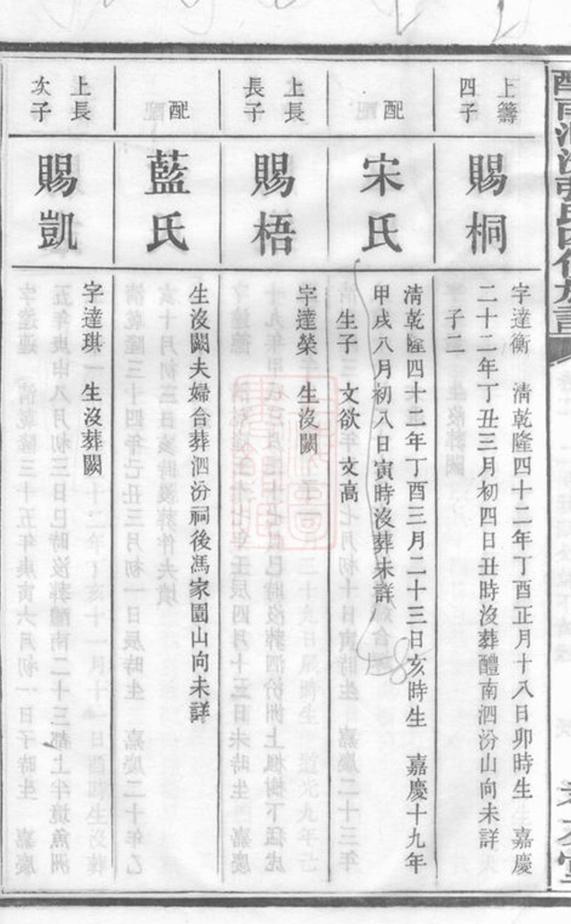 上籌
四子
賜桐
字達衡 清乾隆四十二年丁酉正月十八日卯時生 嘉慶
二十二年丁丑三月初四日丑時沒葬醴南泗汾山向未詳
子二
配
宋氏
清乾隆四十二年丁酉三月二十三日亥時生 嘉慶十九年
甲戌八月初八日寅時沒葬未詳
生子 文欲 文高
上長
長子
賜梧
字達榮 生沒闕
配
藍氏
生沒闕夫婦合葬泗汾祠後馮家園山向未詳
上長
次子
賜凱
字達琪 生沒葬闕